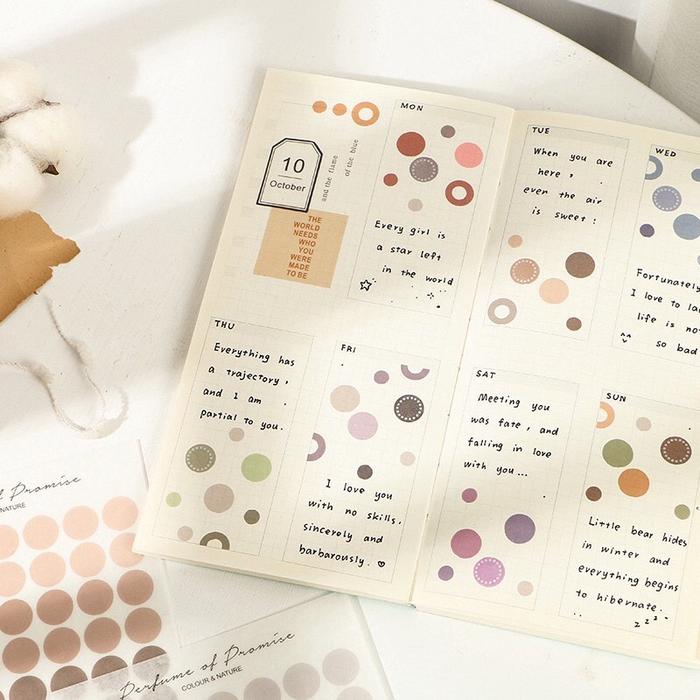 10
October
and the flame
of the blue
THE
WORLD
NEEDS
WHO
YOU
WERE
MADE
TO BE
MON
Every girl is
a star left
in the world
TUE
When you are
here ,
even the air
is sweet :
WED
Fortunately
I love to
life is
so bad
THU
Everything has
a trajectory ,
and I am
partial to you.
FRI
I love you
with no skills.
sincerely and
barbarously. ♡
SAT
Meeting you
was fate , and
falling in love
with you...
SUN
Little bear hides
in winter and
everything begins
to hibernate.
z z z
of Promise
NATURE
Perfume of Promise
COLOUR & NATURE